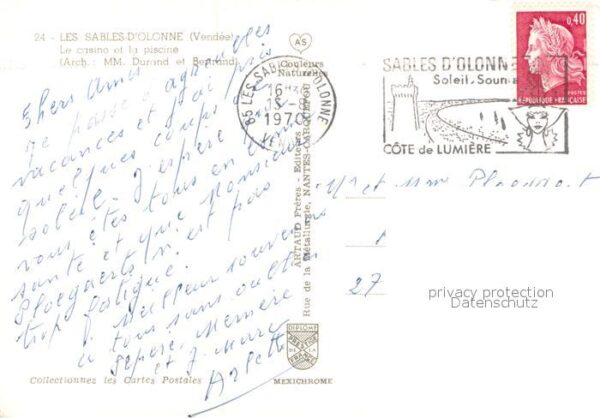 24 - LES SABLES-D'OLONNE (Vendée)
Le casino et la piscine
(Arch : MM. Durand et Bertrand)
Chers Amis
Je passe d'agréables
vacances et j'ai pris
quelques coups de
soleil. J'espère que
vous êtes tous en bonne
santé et que Monsieur
Ploegaerts n'est pas
trop fatigué.
Meilleur souvenirs
à tous sans oublier
Pépère, Mémère
et J. Marc
Arlette
Collectionnez les Cartes Postales
AS
Couleurs
Naturelles
ARTAUD Frères - Editeurs
Rue de la Métallurgie, NANTES-CARQUEFOU
DIPLOME
PRESTIGE
DE LA
FRANCE
MEXICHROME
85 LES SABLES D'OLONNE
16H30
15-6
1970
SABLES D'OLONNE
Soleil. Sourire
CÔTE de LUMIÈRE
0,40
POSTES
REPUBLIQUE FRANÇAISE
Mr et Mme
27
privacy protection
Datenschutz